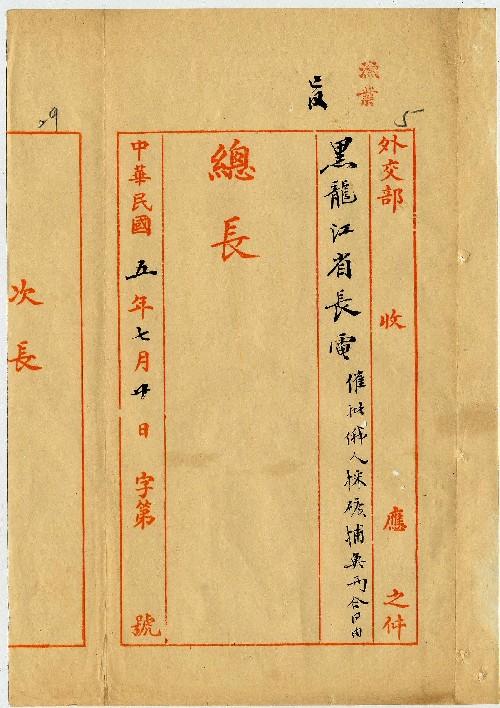 漁業
5
外交部 收 應 之件
黑龍江省長電 催批俄人採礦捕魚兩合同由
總長
中華民國五年七月廿日 字第 號
29
次長